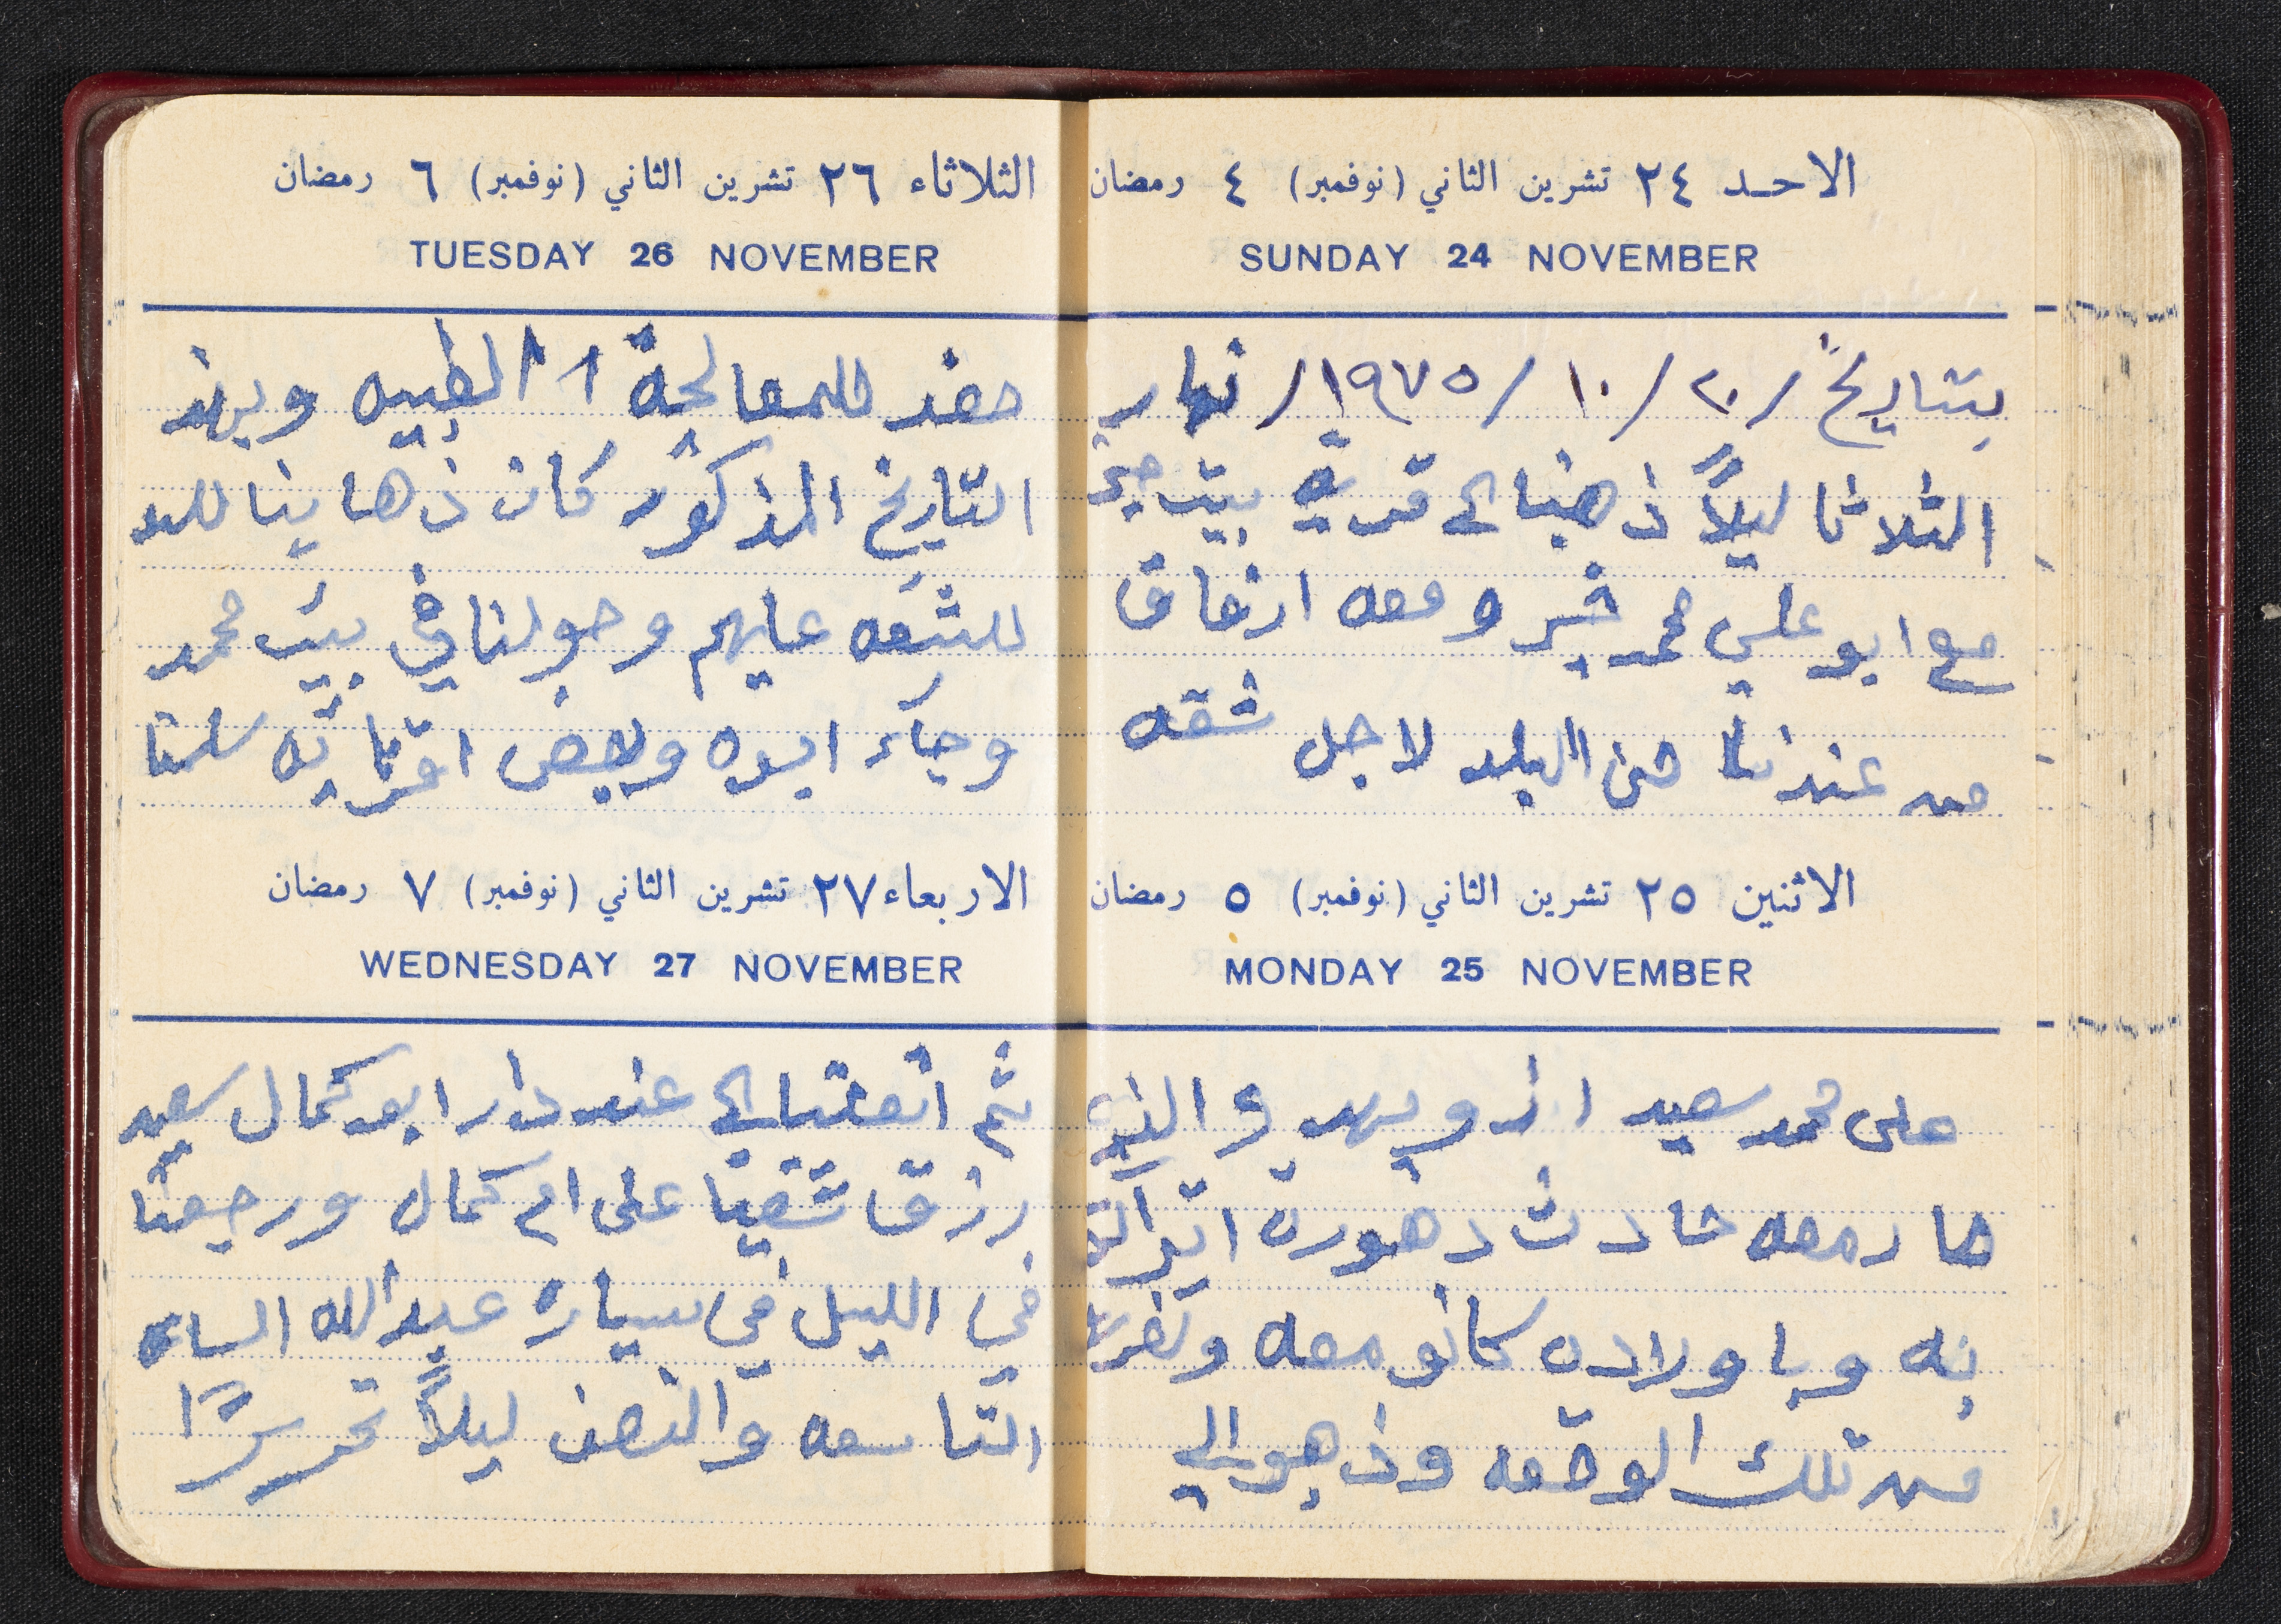 الاحد ٢٤ تشرين الثاني (نوفمبر) ٤ رمضان
SUNDAY 24 NOVEMBER
بتاريخ /٢٠/ ١٠/ ١٩٧٥/ نهار
الثلاثا ليلاً ذهبنا الى قرية بيت
مع ابو علي محمد ومعه ارفاق
من عندنا من البلد لاجل شقه
الاثنين ٢٥ تشرين الثاني (نوفمبر) ٥ رمضان
MONDAY 25 NOVEMBER
على محمد سعيد والذي
صار معه حادث
به وباولاده كانو معه
من تلك الوقعه وذهبو الى
الثلاثاء ٢٦ تشرين الثاني (نوفمبر) ٦ رمضان
TUESDAY 26 NOVEMBER
للمعالجة الطبيه
التاريخ المذكور كان ذهابنا للبد
للشقه عليهم وحولنا في بيت محمد
وجآء ابوه وبعض اقربائه سلمنا
الاربعاء ٢٧ تشرين الثاني (نوفمبر) ٧ رمضان
WEDNESDAY 27 NOVEMBER
ثم الى عند دار ابو كمال سعيد
رزق شقينا على ام كمال ورجعنا
في الليل في سيارة عبدالله الساعه
التاسعه والنصف ليلاً تحريرًا